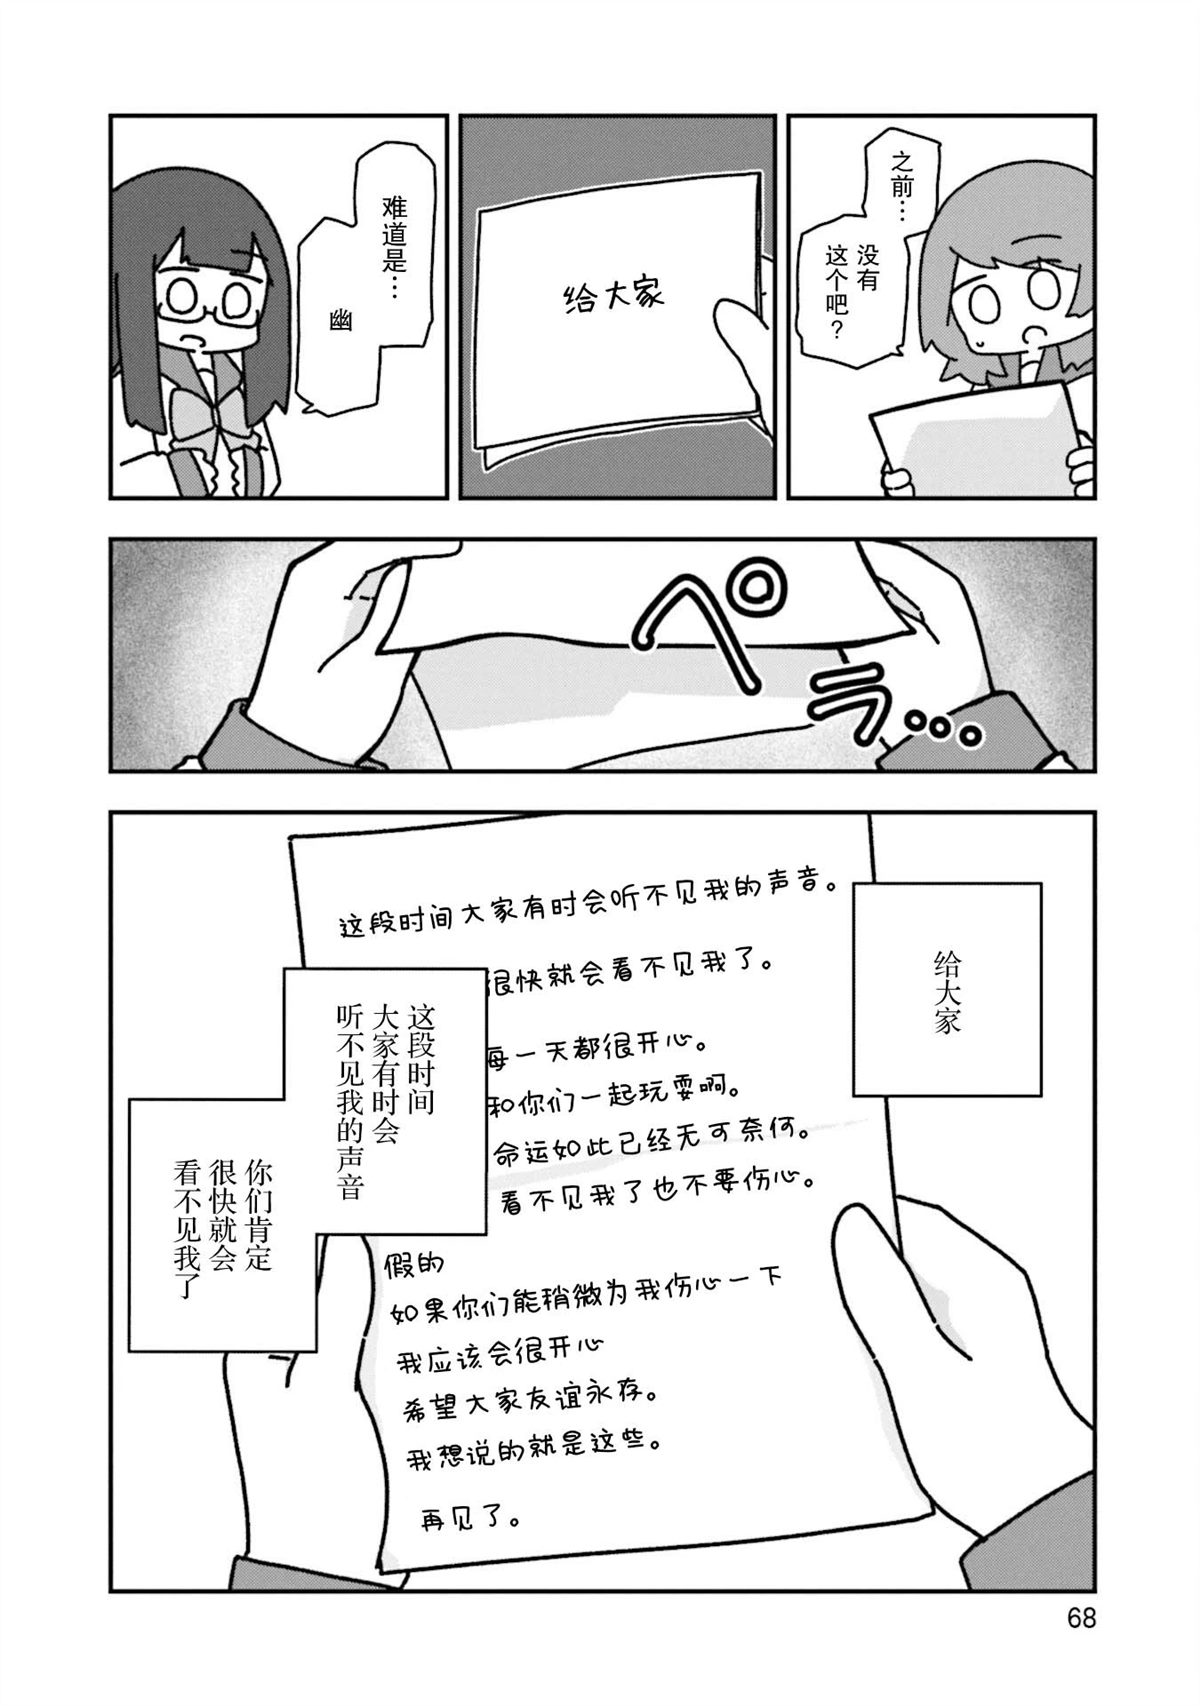 之前…
没有
这个吧?
给大家
难道是…
幽
ペラ…
给大家
这段时间
大家有时会
听不见我的声音
你们肯定
很快就会
看不见我了
这段时间大家有时会听不见我的声音。
很快就会看不见我了。
每一天都很开心。
和你们一起玩耍啊。
命运如此已经无可奈何。
看不见我了也不要伤心。
假的
如果你们能稍微为我伤心一下
我应该会很开心
希望大家友谊永存。
我想说的就是这些。
再见了。
68